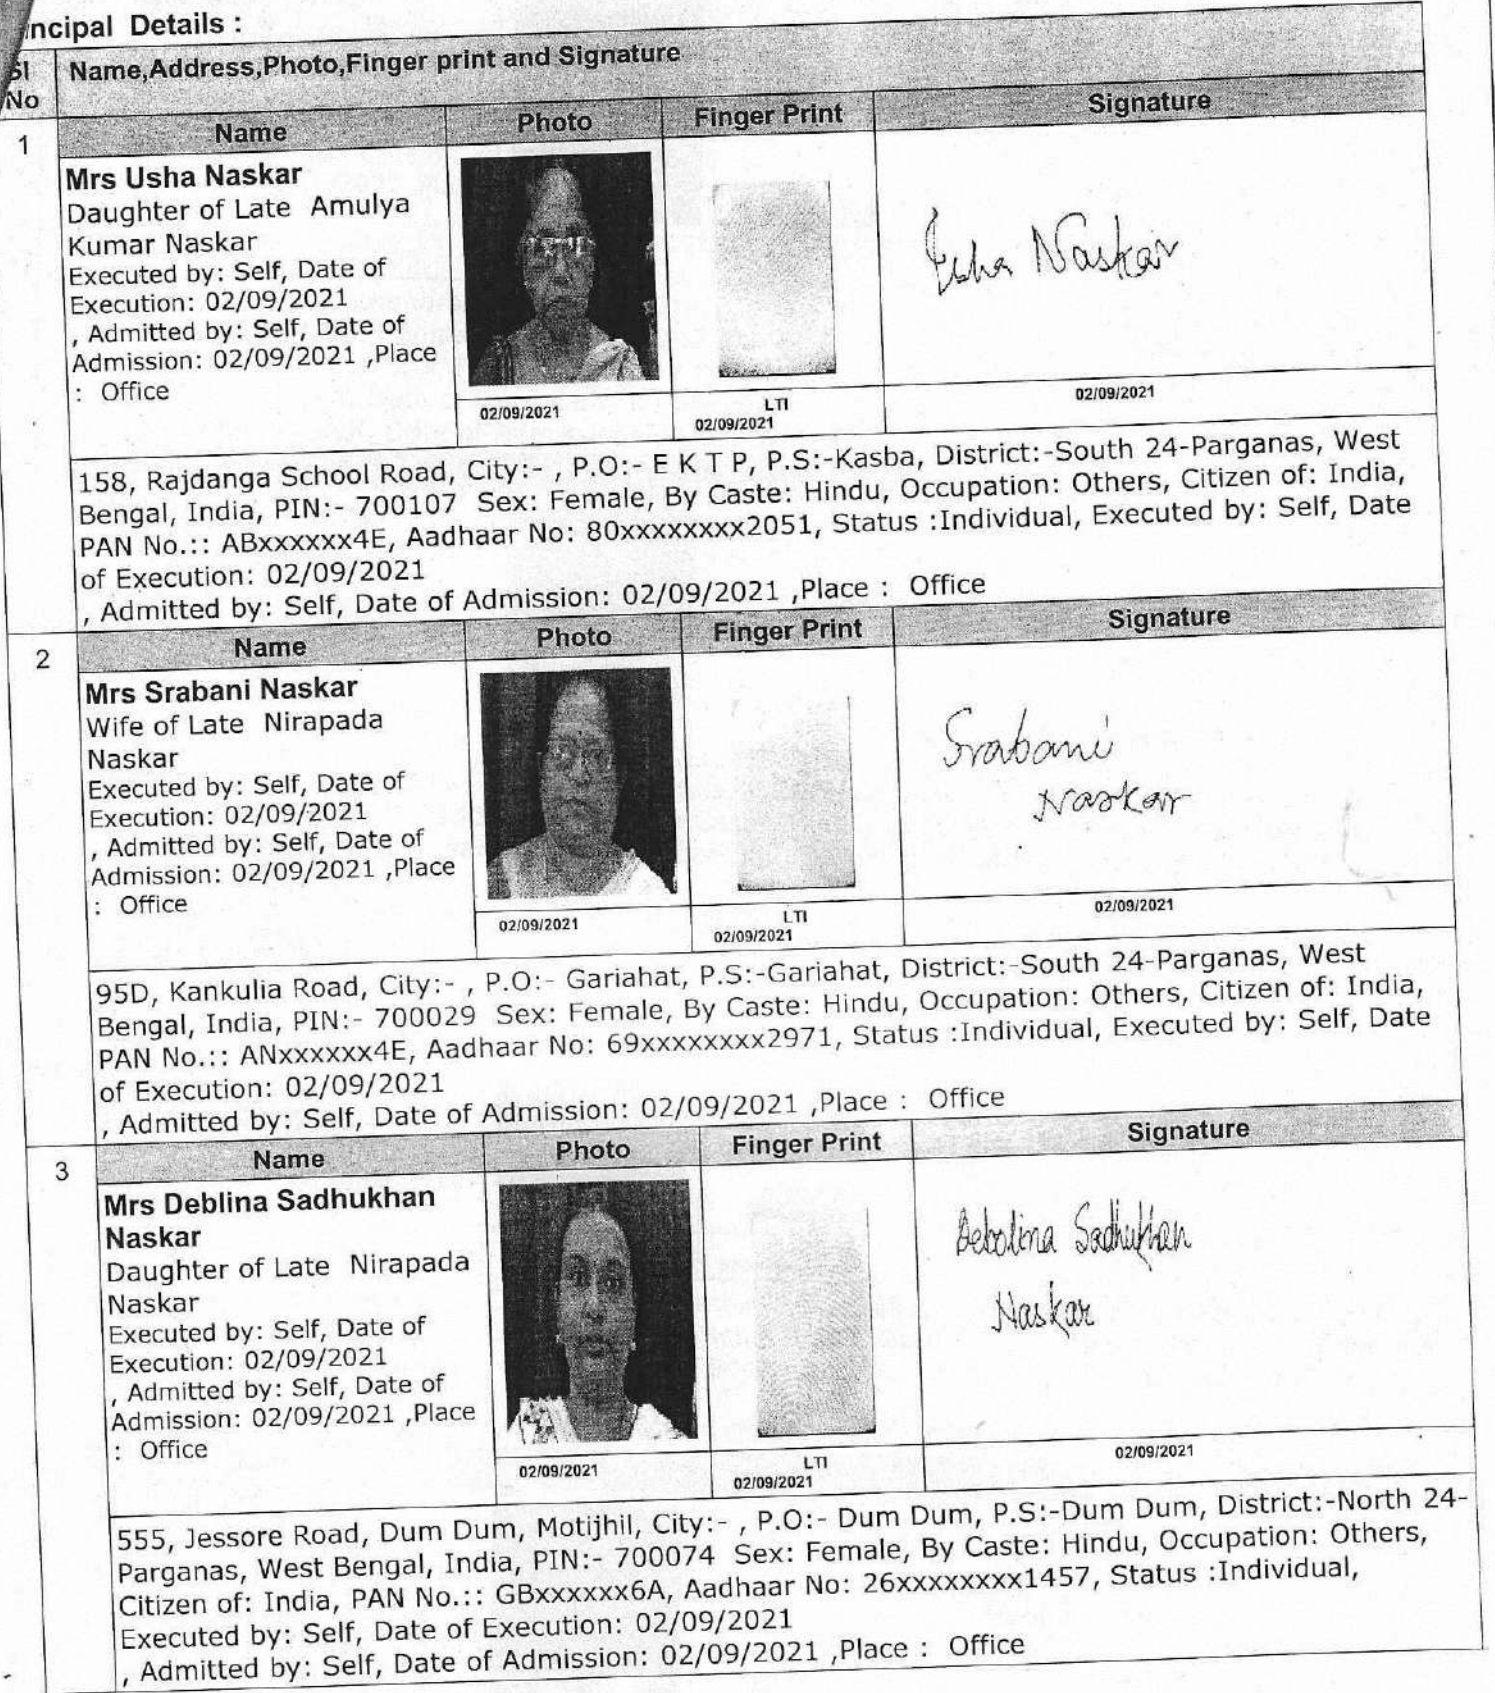 ncipal Details :
Sl
No
Name,Address,Photo,Finger print and Signature
1
Name
Photo
Finger Print
Signature
Mrs Usha Naskar
Daughter of Late Amulya
Kumar Naskar
Executed by: Self, Date of
Execution: 02/09/2021
, Admitted by: Self, Date of
Admission: 02/09/2021 ,Place
: Office
Usha Naskar
02/09/2021
LTI
02/09/2021
02/09/2021
158, Rajdanga School Road, City:- , P.O:- E K T P, P.S:-Kasba, District:-South 24-Parganas, West
Bengal, India, PIN:- 700107 Sex: Female, By Caste: Hindu, Occupation: Others, Citizen of: India,
PAN No.:: ABxxxxxx4E, Aadhaar No: 80xxxxxxxx2051, Status :Individual, Executed by: Self, Date
of Execution: 02/09/2021
, Admitted by: Self, Date of Admission: 02/09/2021 ,Place : Office
2
Name
Photo
Finger Print
Signature
Mrs Srabani Naskar
Wife of Late Nirapada
Naskar
Executed by: Self, Date of
Execution: 02/09/2021
, Admitted by: Self, Date of
Admission: 02/09/2021 ,Place
: Office
Srabani
Naskar
02/09/2021
LTI
02/09/2021
02/09/2021
95D, Kankulia Road, City:- , P.O:- Gariahat, P.S:-Gariahat, District:-South 24-Parganas, West
Bengal, India, PIN:- 700029 Sex: Female, By Caste: Hindu, Occupation: Others, Citizen of: India,
PAN No.:: ANxxxxxx4E, Aadhaar No: 69xxxxxxxx2971, Status :Individual, Executed by: Self, Date
of Execution: 02/09/2021
, Admitted by: Self, Date of Admission: 02/09/2021 ,Place : Office
3
Name
Photo
Finger Print
Signature
Mrs Deblina Sadhukhan
Naskar
Daughter of Late Nirapada
Naskar
Executed by: Self, Date of
Execution: 02/09/2021
, Admitted by: Self, Date of
Admission: 02/09/2021 ,Place
: Office
Debolina Sadhukhan
Naskar
02/09/2021
LTI
02/09/2021
02/09/2021
555, Jessore Road, Dum Dum, Motijhil, City:- , P.O:- Dum Dum, P.S:-Dum Dum, District:-North 24-
Parganas, West Bengal, India, PIN:- 700074 Sex: Female, By Caste: Hindu, Occupation: Others,
Citizen of: India, PAN No.:: GBxxxxxx6A, Aadhaar No: 26xxxxxxxx1457, Status :Individual,
Executed by: Self, Date of Execution: 02/09/2021
, Admitted by: Self, Date of Admission: 02/09/2021 ,Place : Office